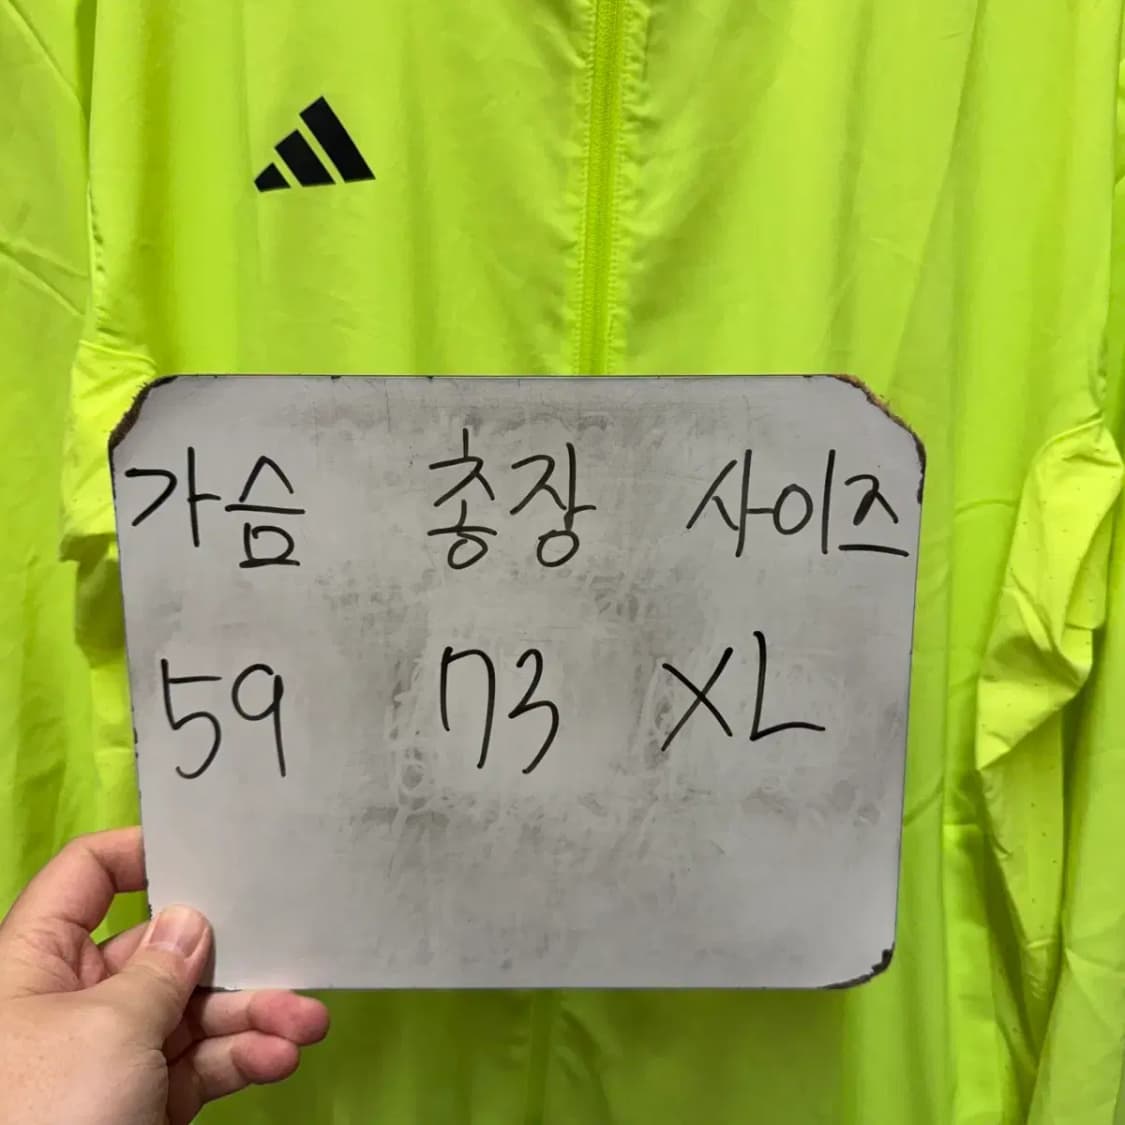 가슴 총장 사이즈
59 73 XL